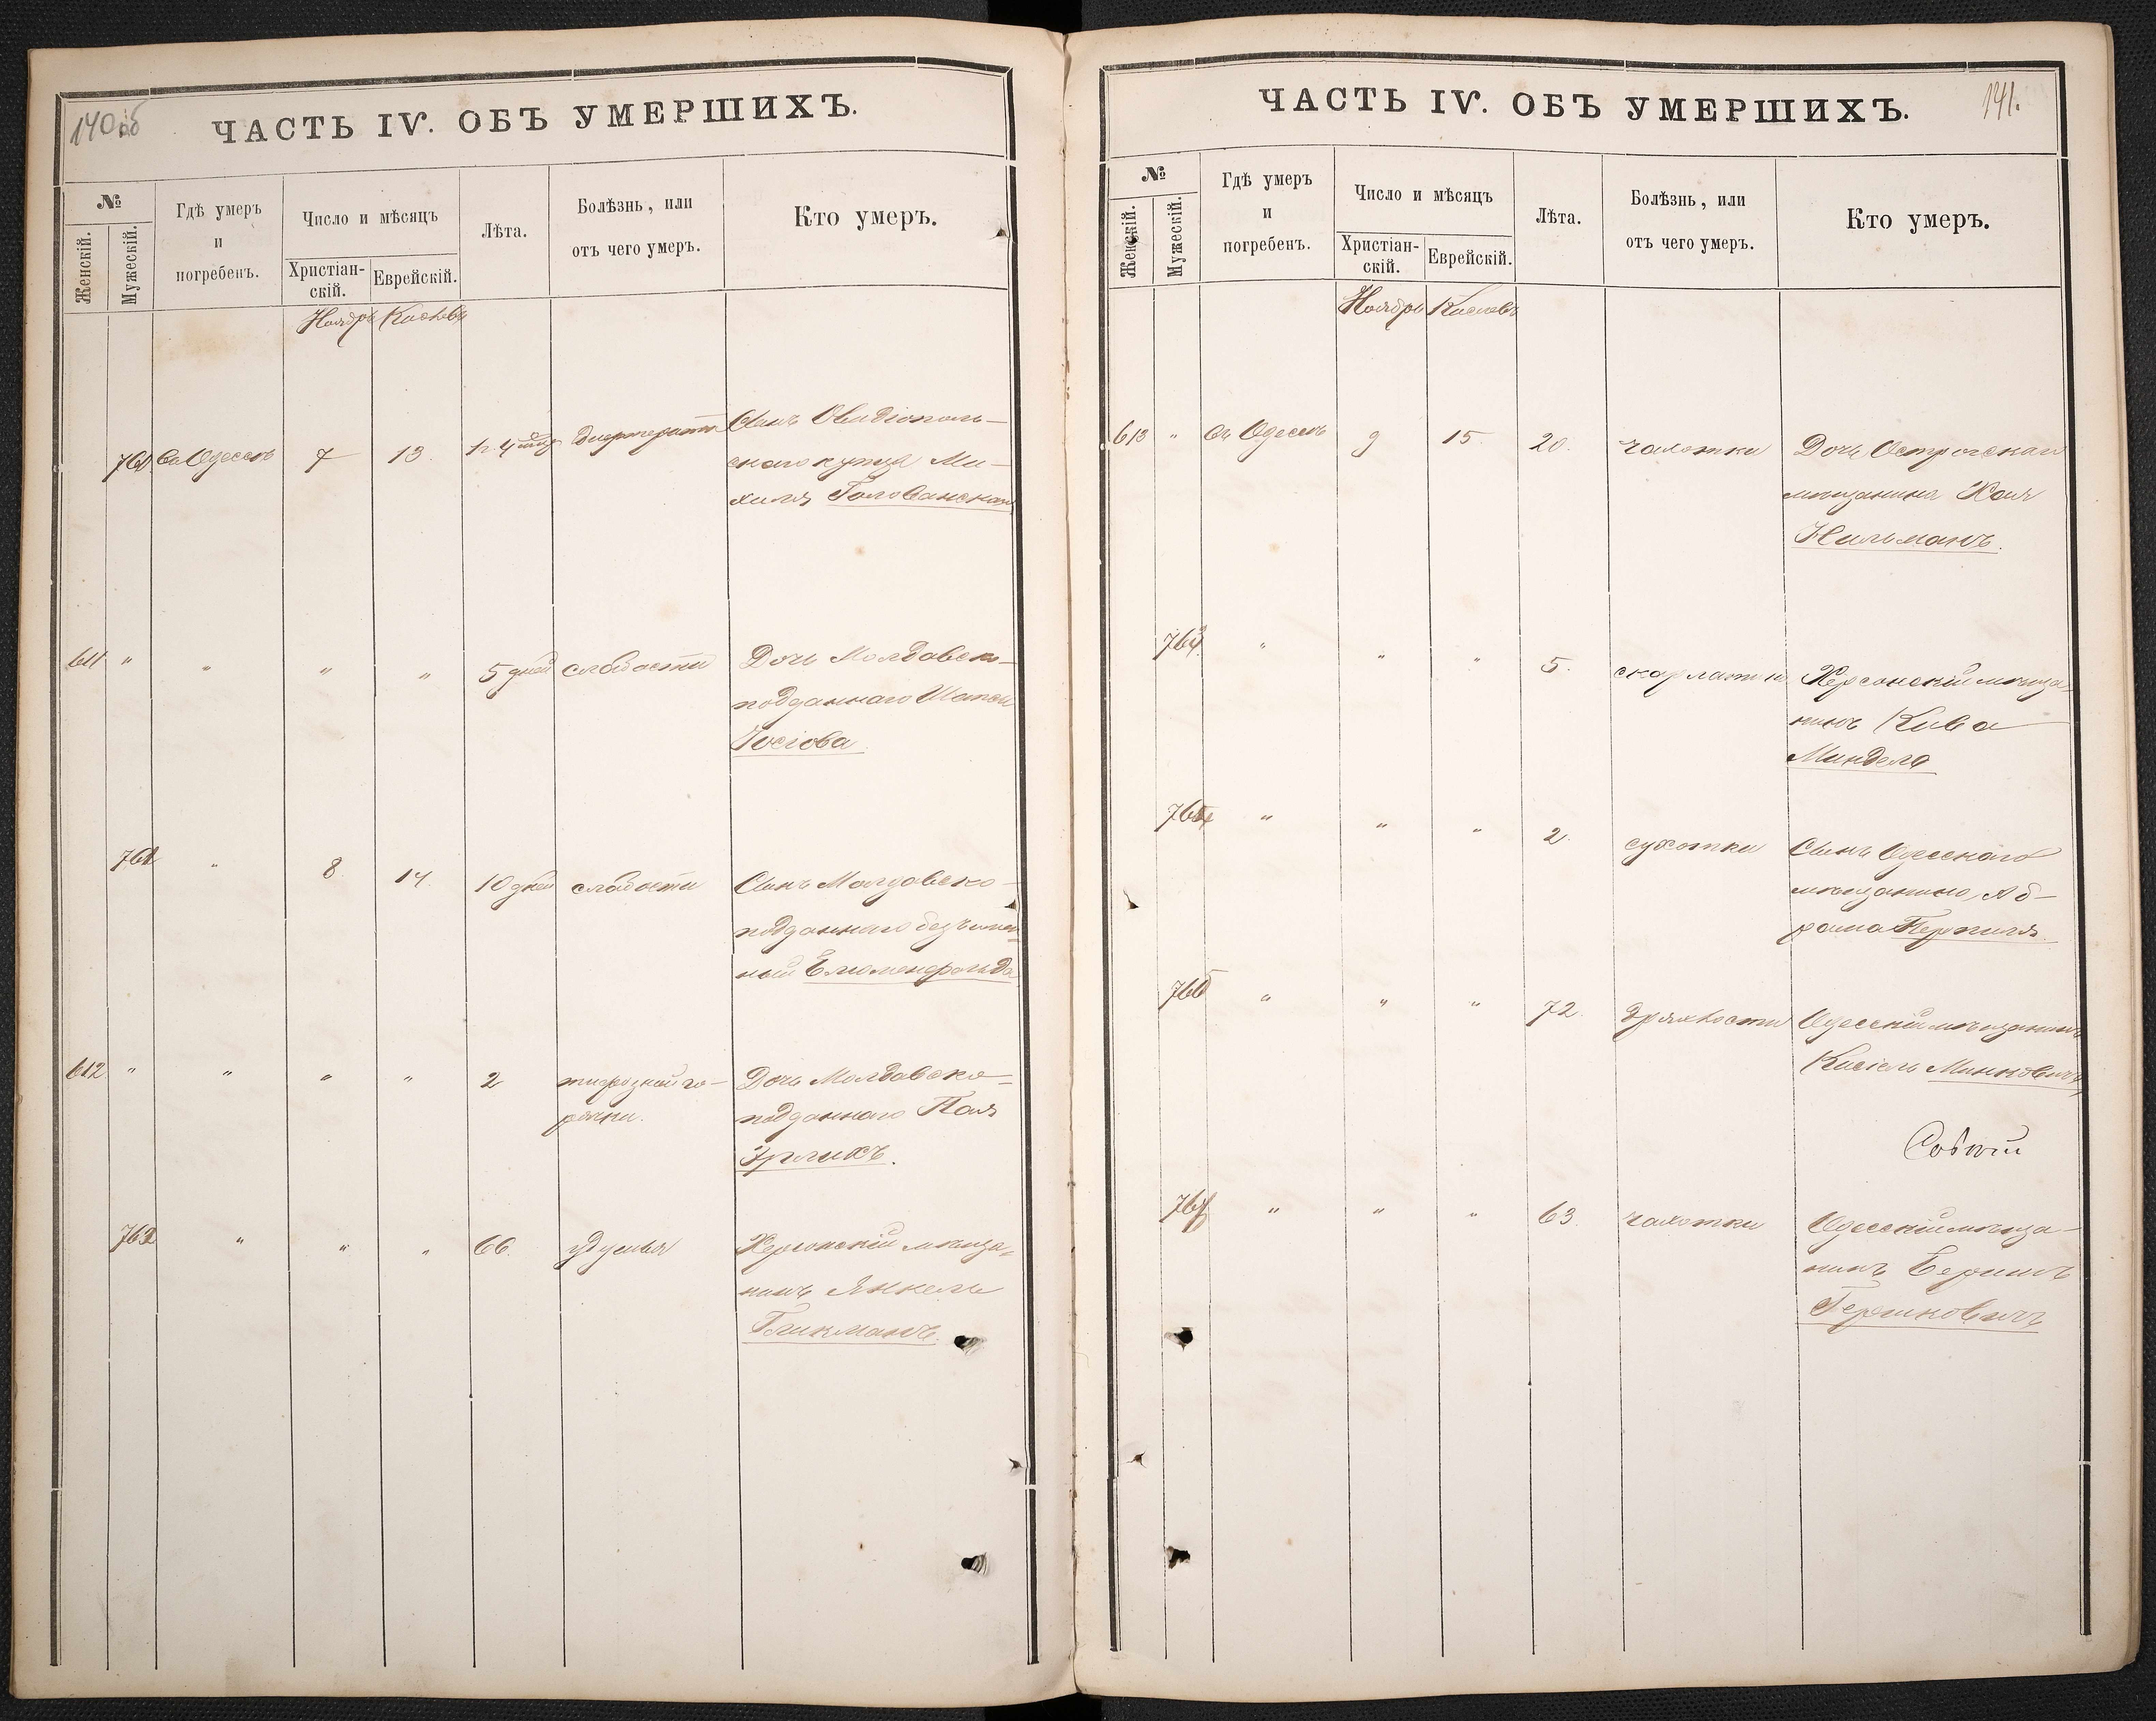 140об
ЧАСТЬ IV. ОБЪ УМЕРШИХЪ.
№
Женскій.
Мужескій.
Гдѣ умеръ
и
погребенъ.
Число и мѣсяцъ
Христіан-
скій.
Еврейскій.
Лѣта.
Болѣзнь, или
отъ чего умеръ.
Кто умеръ.
Ноябрь Кислевъ
760 Въ Одессѣ 7 13. Сынъ Овидіополь-
скаго купца Ми-
хиля Голованскаго
611 " " " " 5 дней слабости Дочь Молдавско-
подданнаго
Іосіова
761 " 8 14. 10 дней слабости Сынъ Молдавско-
подданнаго безъимен-
ный Блюменфельда
612 " " " " 2 тифозной го- Дочь Молдавско-
рячки. подданнаго Поля
Эрлихъ.
762 " " " 66. удушья Херсонскій мѣща-
нинъ Янкель
Гликманъ.
141.
ЧАСТЬ IV. ОБЪ УМЕРШИХЪ.
№
Женскій.
Мужескій.
Гдѣ умеръ
и
погребенъ.
Число и мѣсяцъ
Христіан-
скій.
Еврейскій.
Лѣта.
Болѣзнь, или
отъ чего умеръ.
Кто умеръ.
Ноябрь Кислевъ
613 " Въ Одессѣ 9 15. 20. чахотки Дочь Острогскаго
мѣщанина Хая
Нильманъ.
" " " 5. скарлатины Херсонскій мѣща-
нинъ Кива
Миндель
" " " 2. сухотки Сынъ Одесскаго
мѣщанина Аб-
рама Перпиля.
" " " 72. дряхлости Одесскій мѣщанинъ
Кисіель Минковичъ
" " " 63. чахотки Одесскій мѣща-
нинъ Беришъ
Гершковичъ